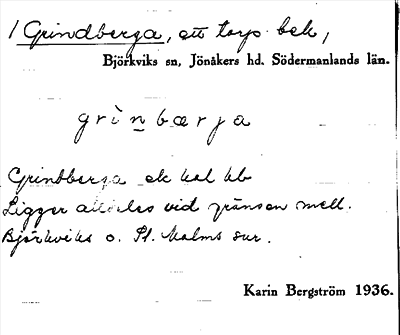 / Grindberga, ett torp bek,
Björkviks sn, Jönåkers hd. Södermanlands län.
grìnbærja
Grindberga ek kal kb
Ligger alldeles vid gränsen mell.
Björkviks o. St. Malms snr.
Karin Bergström 1936.